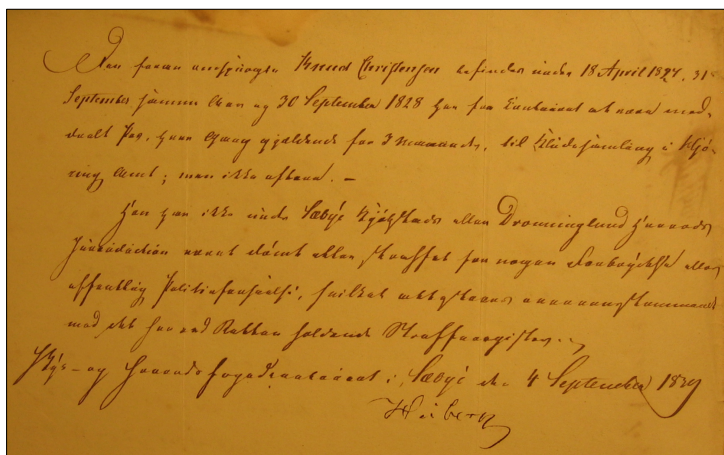 Den foran omspurgte Knud Christensen befindes under 18 April 1827, 31
September samme Aar og 30 September 1828 her fra Contoiret at være med-
deelt Pas, hver Gang gjældende for 3 Maaneder, til Kludesamling i Hjø-
ring Amt; men ikke oftere. –
Han har ikke under Sæbye Kjøbstads eller Dronninglund Herreds
Jurisdiction været dømt eller straffet for nogen Forbrydelse eller
offentlig Politieforseelse, hvilket attesteres overensstemmende
med det her ved Retten holdende Strafferegister.
Bye- og Herredsfogedcontoiret i Sæbye den 4 September 1839